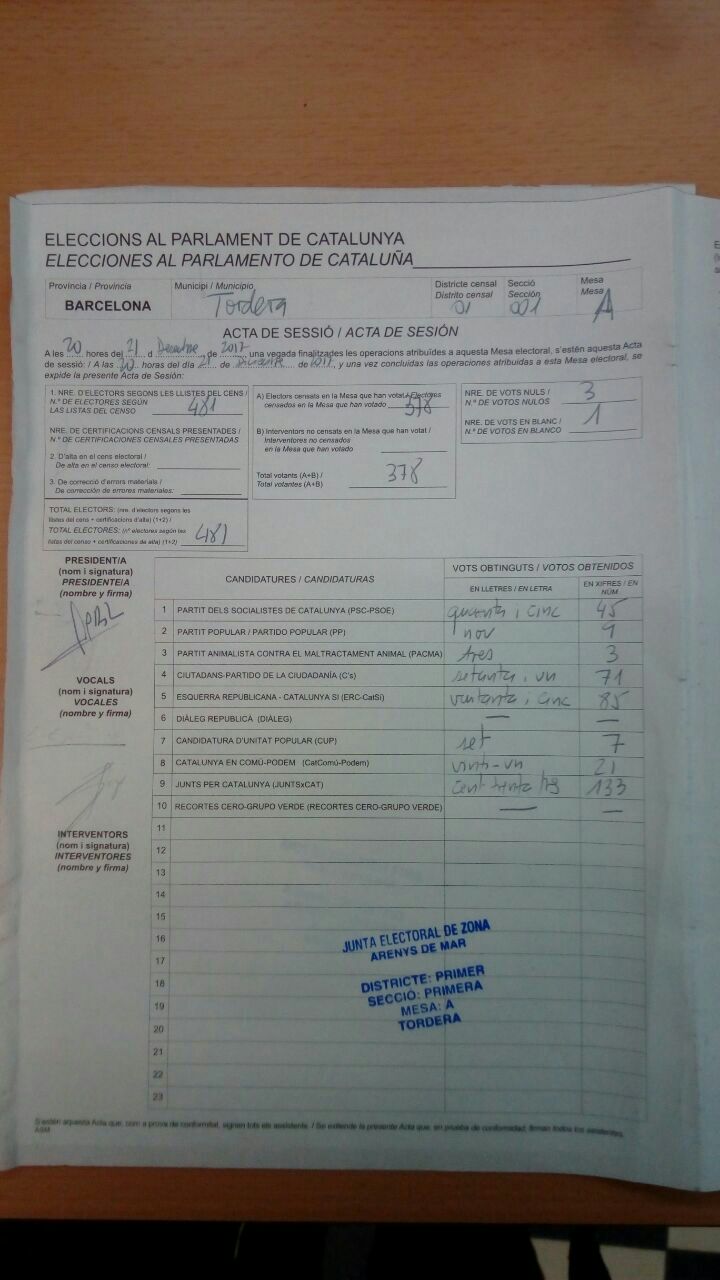 ELECCIONS AL PARLAMENT DE CATALUNYA
ELECCIONES AL PARLAMENTO DE CATALUÑA
Província / Provincia
BARCELONA
Municipi / Municipio
Tordera
Districte censal
Distrito censal
01
Secció
Sección
001
Mesa
Mesa
A
ACTA DE SESSIÓ / ACTA DE SESIÓN
A les 20 hores del 21 d Desembre de 2017, una vegada finalitzades les operacions atribuïdes a aquesta Mesa electoral, s'estén aquesta Acta
de sessió: / A las 20 horas del día 21 de Diciembre de 2017, y una vez concluidas las operaciones atribuidas a esta Mesa electoral, se
expide la presente Acta de Sesión:
1. NRE. D'ELECTORS SEGONS LES LLISTES DEL CENS /
N.º DE ELECTORES SEGÚN
LAS LISTAS DEL CENSO 481
NRE. DE CERTIFICACIONS CENSALS PRESENTADES /
N.º DE CERTIFICACIONES CENSALES PRESENTADAS
2. D'alta en el cens electoral /
De alta en el censo electoral:
3. De correcció d'errors materials /
De corrección de errores materiales:
TOTAL ELECTORS: (nre. d'electors segons les
llistes del cens + certificacions d'alta) (1+2) /
TOTAL ELECTORES: (nº electores según las
listas del censo + certificaciones de alta) (1+2) 481
A) Electors censats en la Mesa que han votat / Electores
censados en la Mesa que han votado 378
B) Interventors no censats en la Mesa que han votat /
Interventores no censados
en la Mesa que han votado
Total votants (A+B) /
Total votantes (A+B) 378
NRE. DE VOTS NULS /
N.º DE VOTOS NULOS 3
NRE. DE VOTS EN BLANC /
N.º DE VOTOS EN BLANCO 1
PRESIDENT/A
(nom i signatura)
PRESIDENTE/A
(nombre y firma)
VOCALS
(nom i signatura)
VOCALES
(nombre y firma)
INTERVENTORS
(nom i signatura)
INTERVENTORES
(nombre y firma)
CANDIDATURES / CANDIDATURAS
VOTS OBTINGUTS / VOTOS OBTENIDOS
EN LLETRES / EN LETRA
EN XIFRES / EN NÚM.
1 PARTIT DELS SOCIALISTES DE CATALUNYA (PSC-PSOE) quaranta i cinc 45
2 PARTIT POPULAR / PARTIDO POPULAR (PP) nou 9
3 PARTIT ANIMALISTA CONTRA EL MALTRACTAMENT ANIMAL (PACMA) tres 3
4 CIUTADANS-PARTIDO DE LA CIUDADANÍA (C's) setanta, un 71
5 ESQUERRA REPUBLICANA - CATALUNYA SÍ (ERC-CatSí) vuitanta i cinc 85
6 DIÀLEG REPUBLICÀ (DIÀLEG) — —
7 CANDIDATURA D'UNITAT POPULAR (CUP) set 7
8 CATALUNYA EN COMÚ-PODEM (CatComú-Podem) vint-i-un 21
9 JUNTS PER CATALUNYA (JUNTSxCAT) cent trenta tres 133
10 RECORTES CERO-GRUPO VERDE (RECORTES CERO-GRUPO VERDE) — —
11
12
13
14
15
16
17
18
19
20
21
22
23
JUNTA ELECTORAL DE ZONA
ARENYS DE MAR
DISTRICTE: PRIMER
SECCIÓ: PRIMERA
MESA: A
TORDERA
S'estén aquesta Acta que, com a prova de conformitat, signen tots els assistents. / Se extiende la presente Acta que, en prueba de conformidad, firman todos los asistentes.